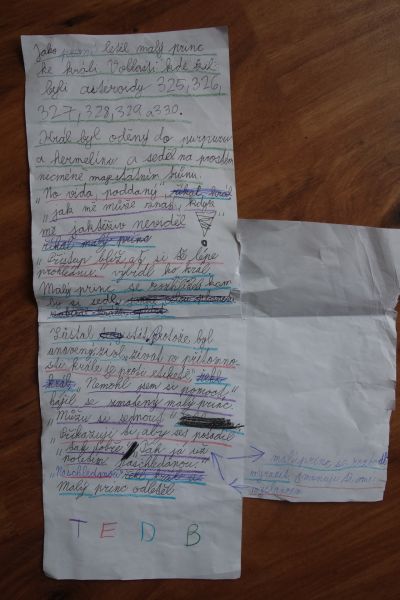 Jako první letěl malý princ
ke králi. V oblasti kde žil
byli asteroidy 325,326,
327,328,329 a 330.
Král byl oděný do purpuru
a hermelínu a seděl na prostém
nicméně magestátním trůnu.
"No vida, poddaný" říkal král
"jak mě může znát, když
mě jaktěživ neviděl
říkal malý princ
"Přistup blíž, ať si tě lépe
prohlédnu" vyzval ho král.
Malý princ se rozhlížel kam
by si sedl,
Zůstal stát. Protože byl
unavený zívl. "Zívat v přítomno-
sti krále je proti etiketě"
král. "Nemohl jsem si pomoct"
hájil se zmatený malý princ.
"Můžu si sednout"
"Přikazuje si, aby ses posadil"
"Tak dobře. Tak já už
půjdu naschledanou."
"Naschledanou
Malý princ odletěl
malý princ se
T E D B